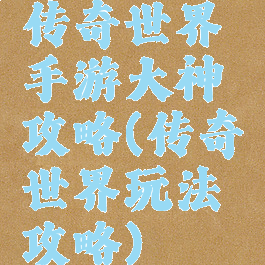 传奇世界
手游大神
攻略(传奇
世界玩法
攻略)